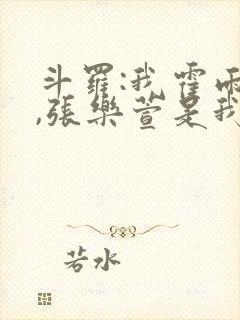 斗羅:我霍雨
,張樂萱是我
若水